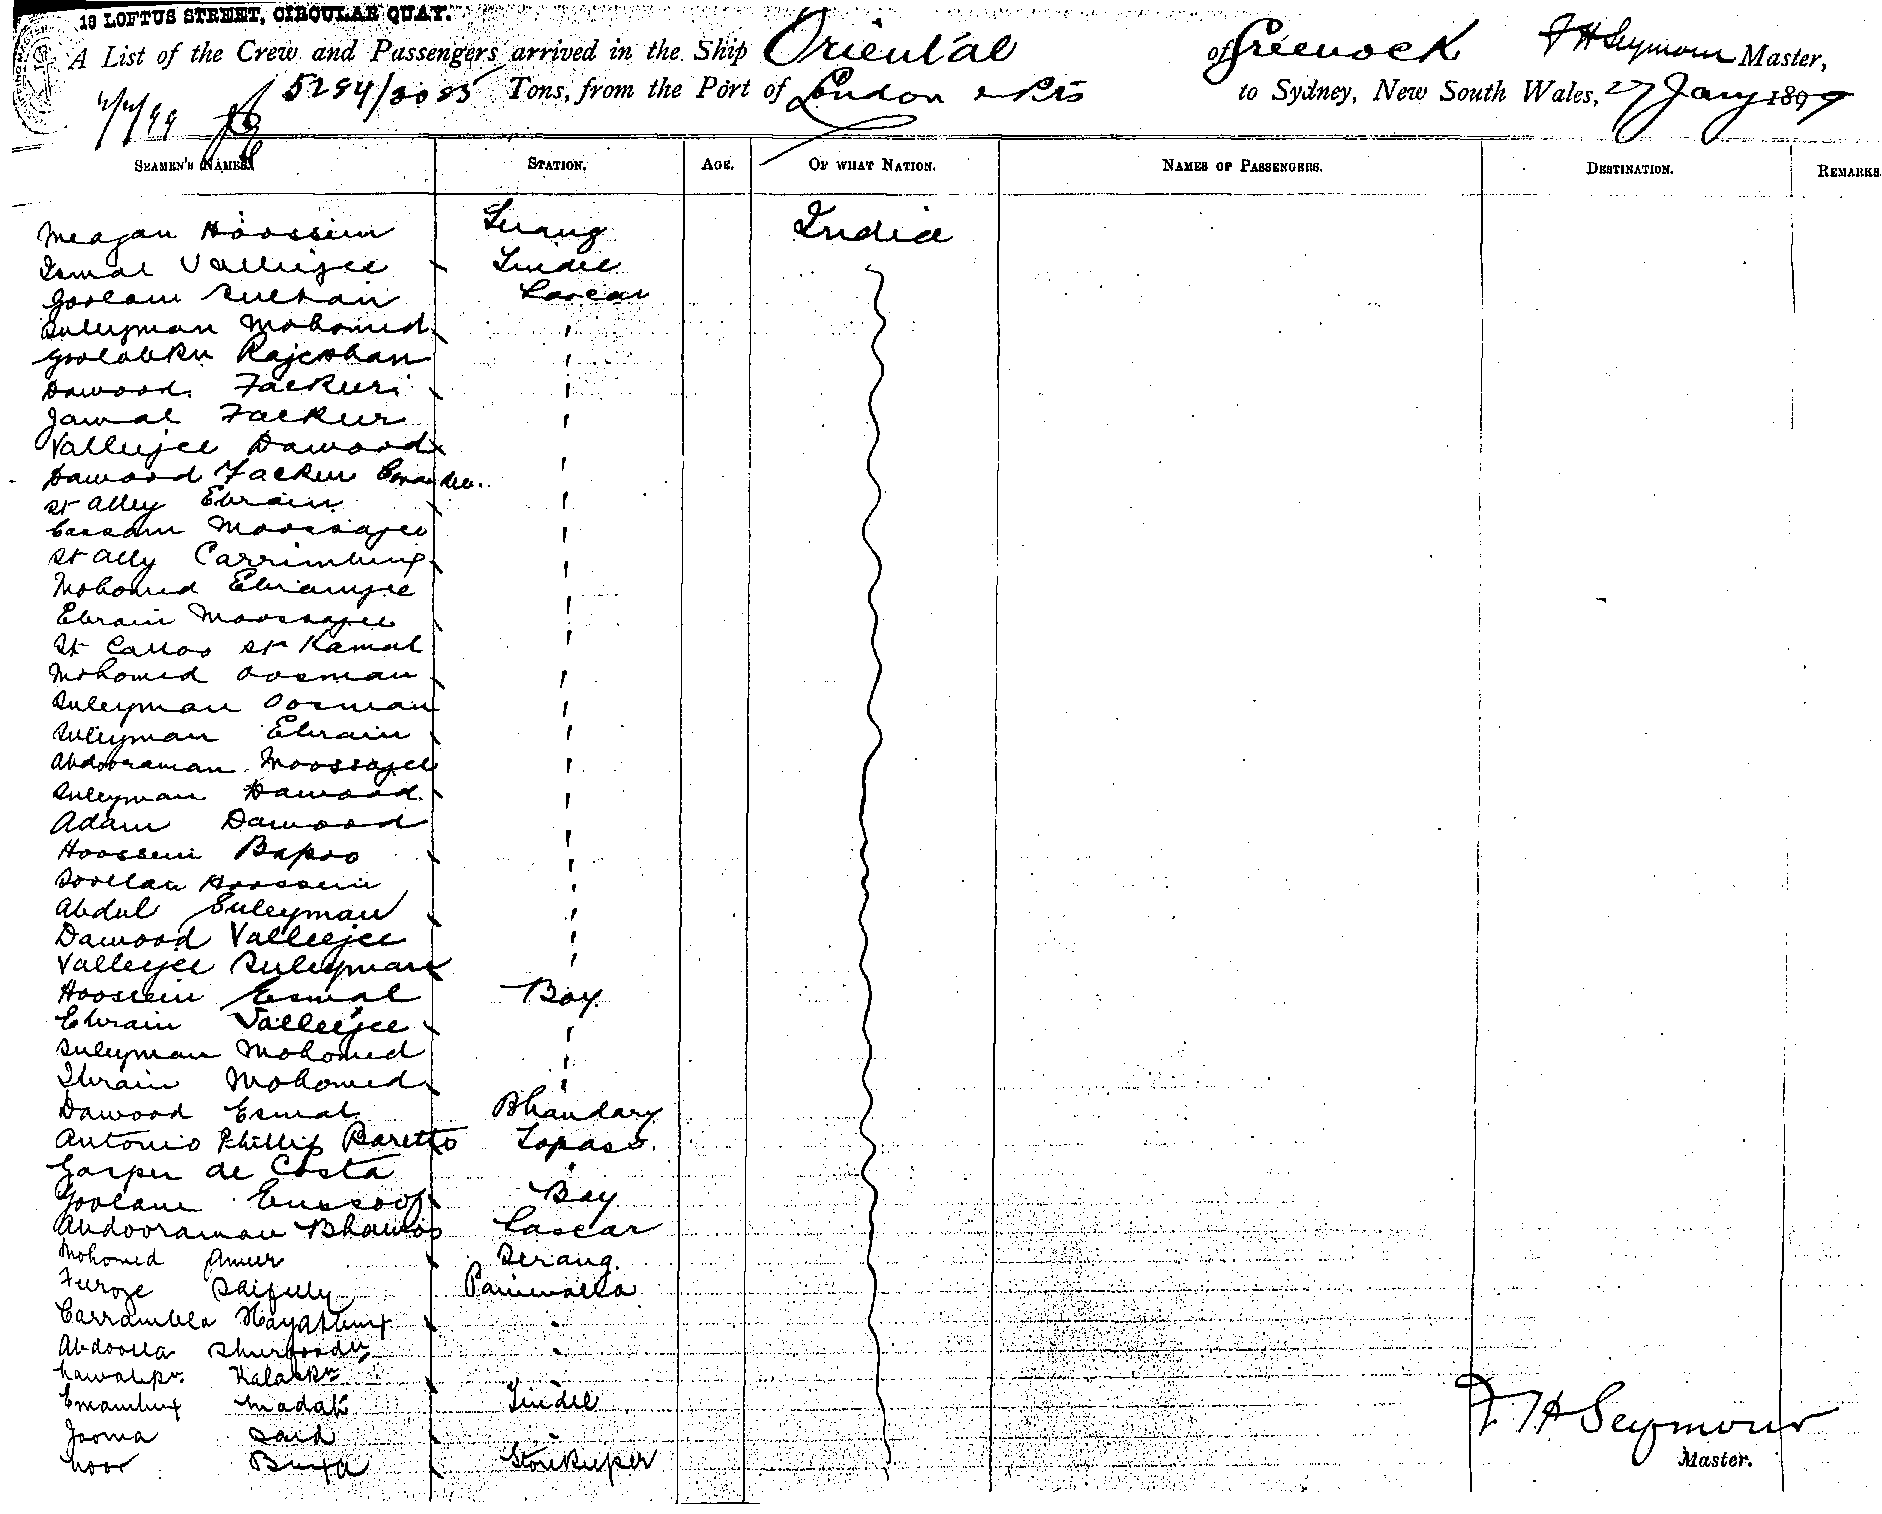 19 LOFTUS STREET, CIRCULAR QUAY.
A List of the Crew and Passengers arrived in the Ship Oriental of Greenock F H Seymour Master,
5284/3085 Tons, from the Port of London & Pts to Sydney, New South Wales, 27 Jany 1899
SEAMEN'S NAMES. STATION. AGE. OF WHAT NATION. NAMES OF PASSENGERS. DESTINATION. REMARKS
Meajan Hoossein Serang India
Esmal Valleejee Tindel
Goolam Sultan Lascar
Suleyman Mohomed "
Rajebhan "
Dawood Fackeer "
Jamal Fackeer "
Valleejee Dawood "
Dawood Fackeer "
St Alley Ebrain "
Cassam Moossajee "
St Ally Carrimbux "
Mohomed Ebramjee "
Ebrain Moossajee "
St Kamal "
Mohomed Oosman "
Suleyman Oosman "
Suleyman Ebrain "
Abdooraman Moossajee "
Suleyman Dawood "
Adam Dawood "
Hoossein Bapoo "
Hoossein "
Abdul Suleyman "
Dawood Valleejee "
Valleejee Suleyman "
Hoossein Esmal Boy
Ebrain Valleejee "
Suleyman Mohomed "
Ibrain Mohomed "
Dawood Esmal Bhandary
Antonio Phillip Baretto Topass.
Gasper de Costa "
Goolam Eussoof Boy
Abdooraman Bhamoo Lascar
Mohomed Ameer Serang.
Feroze Paniwalla
Carrambela Hayatbux "
Abdoolla "
"
Emambux Madat Tindel
Jooma Said "
Noor Buxa Storekeeper
F H Seymour
Master.